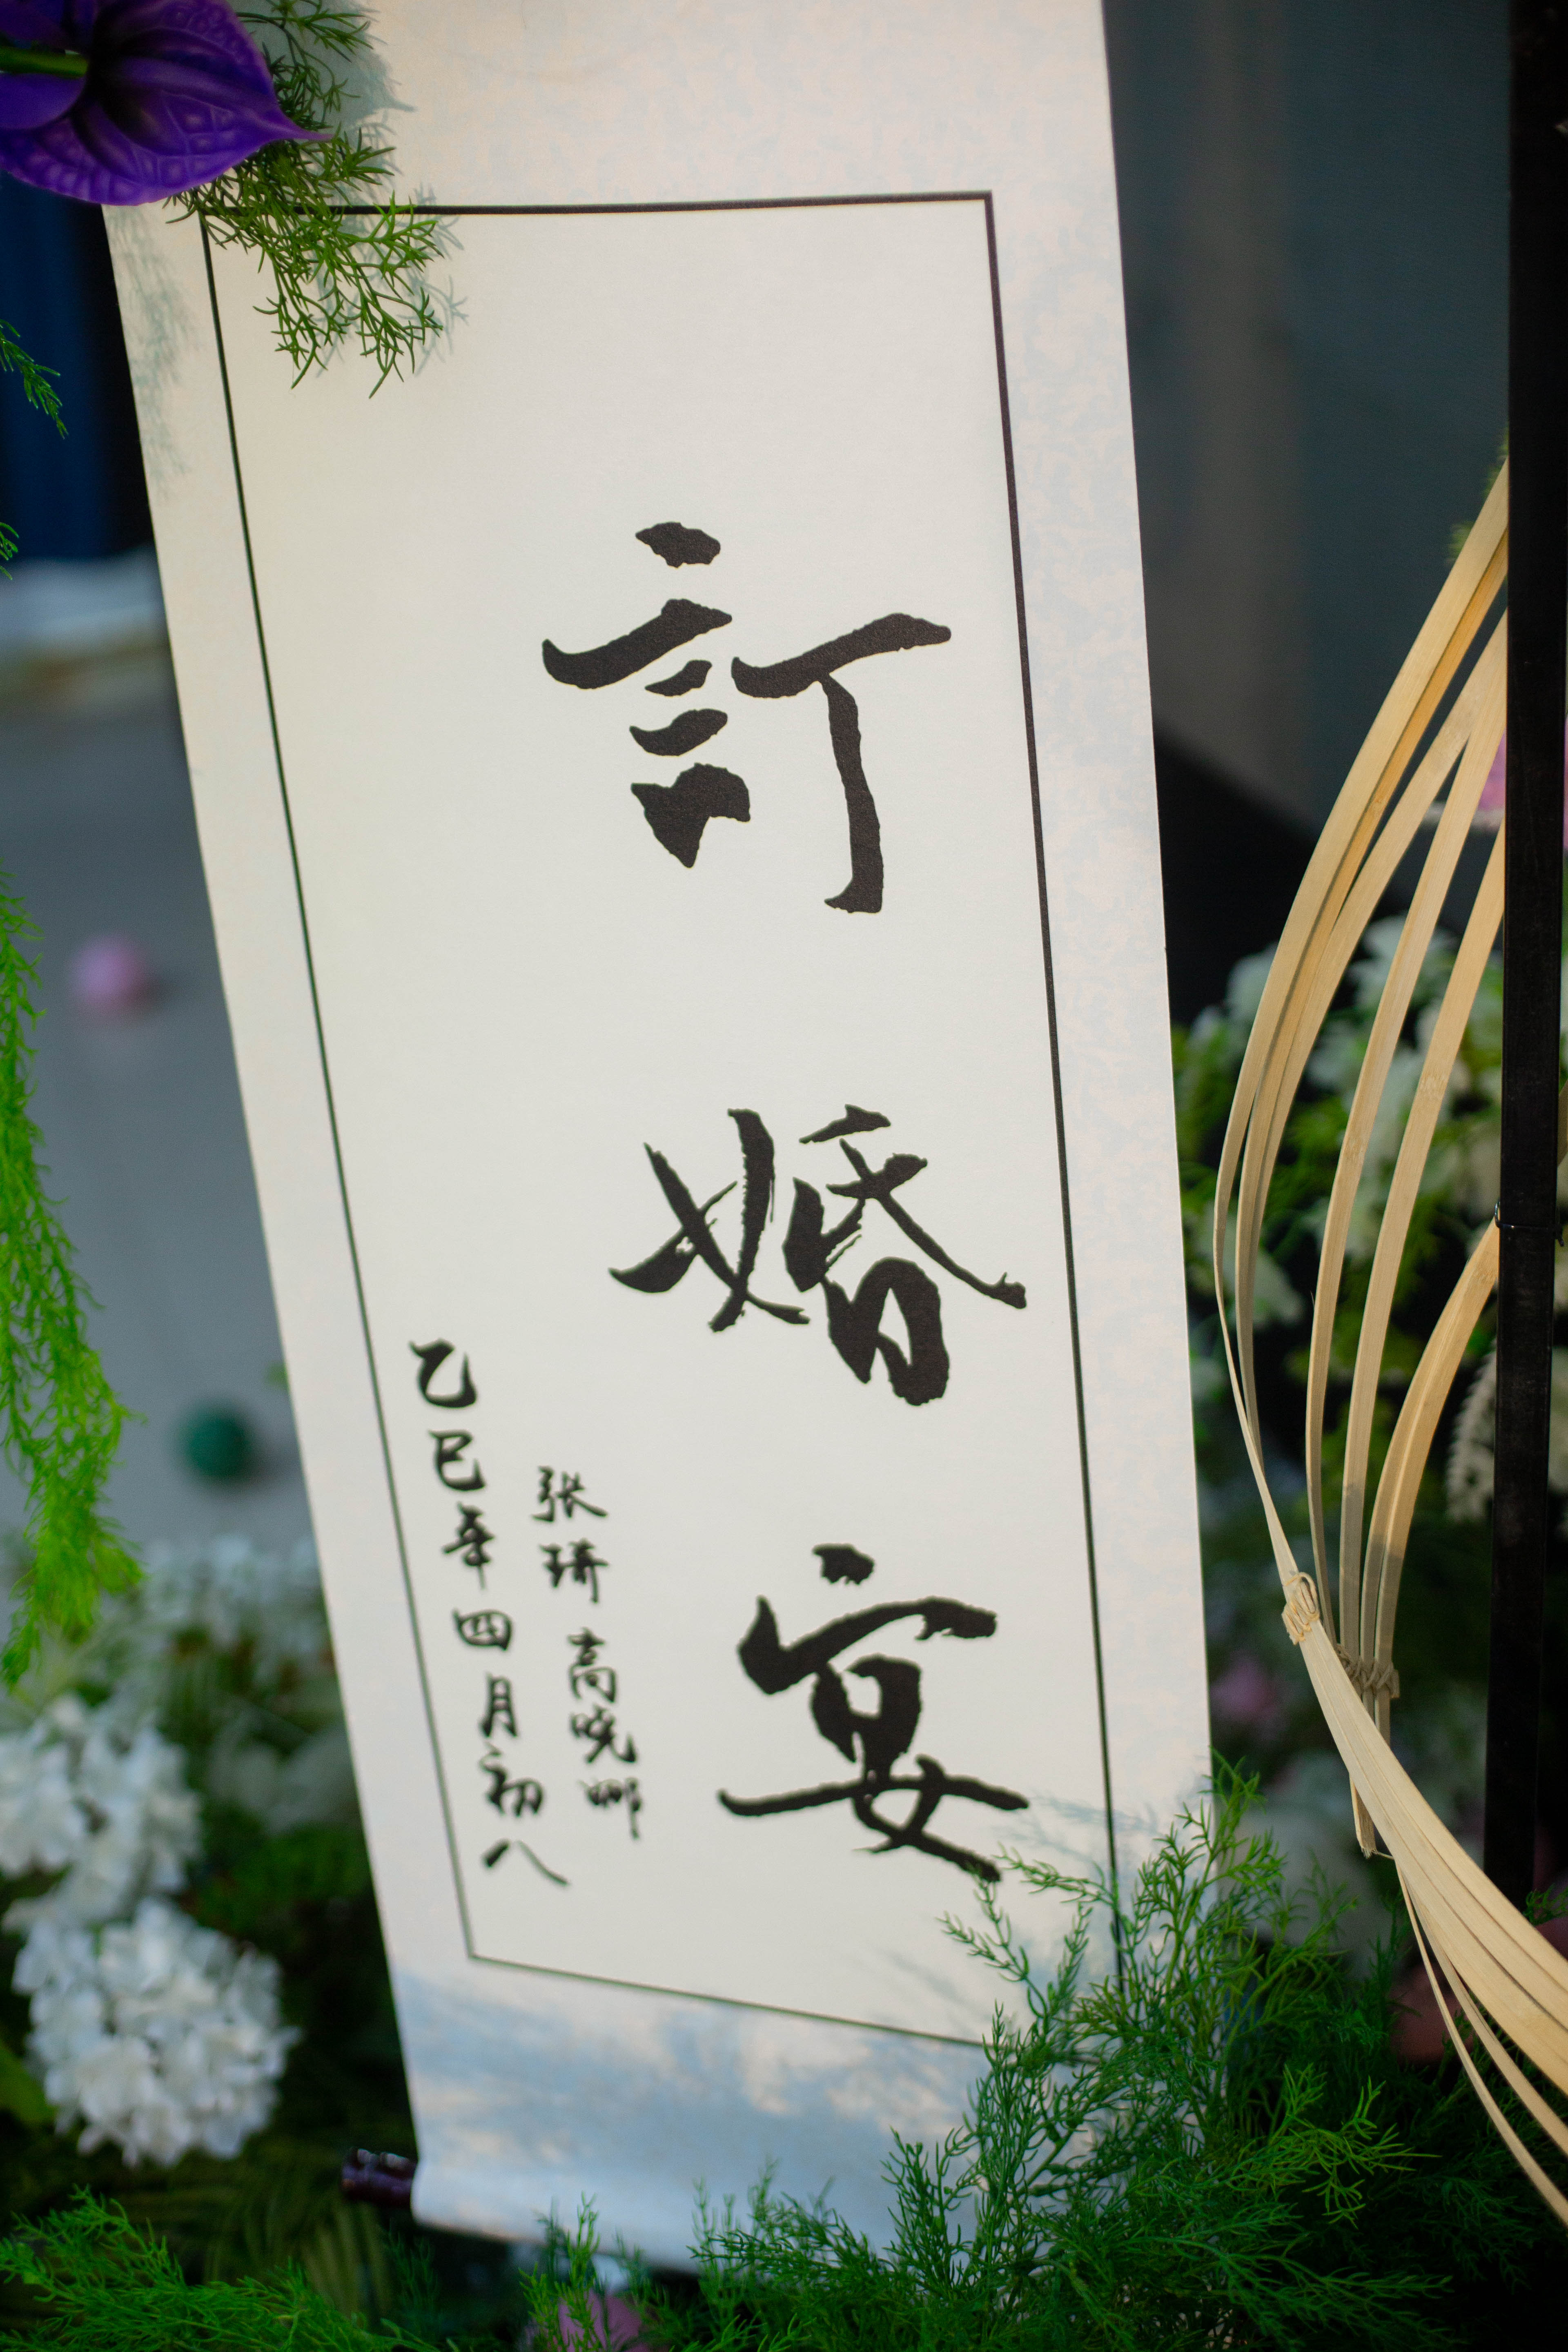 訂婚宴
张琦 高晓娜
乙巳年四月初八